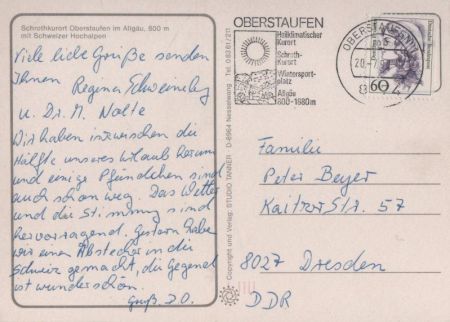 Schrothkurort Oberstaufen im Allgäu, 800 m
mit Schweizer Hochalpen
Viele liebe Grüße senden
Ihnen Regina Schweinsberg
u. Dr. M. Nolte
Wir haben inzwischen die
Hälfte unseres Urlaub herum
und einige Pfündchen sind
auch schon weg. Das Wetter
und die Stimmung sind
hervorragend. Gestern habe
wir einen Abstecher in die
Schweiz gemacht, die Gegend
ist wunderschön.
Gruß. D.O.
Copyright und Verlag: STUDIO TANNER D-8964 Nesselwang · Tel. 08361/211
OBERSTAUFEN
Heilklimatischer
Kurort
Schroth-
Kurort
Wintersport-
platz
Allgäu
800-1680m
OBERSTAUFEN
20.-7.
60
Familie
Peter Beyer
Kaitzer Str. 57
8027 Dresden
DDR